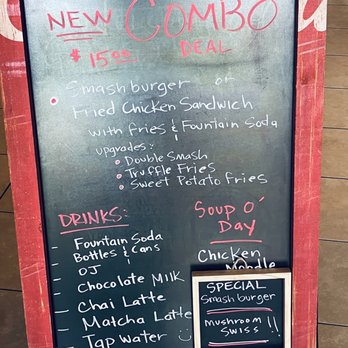 NEW COMBO
$15.00 DEAL
Smashburger or
Fried Chicken Sandwich
with fries & Fountain Soda
upgrades:
• Double Smash
• Truffle Fries
• Sweet Potato Fries
DRINKS:
- Fountain Soda
- Bottles & Cans
- OJ
- Chocolate Milk
- Chai Latte
- Matcha Latte
- Tap Water
SOUP O'
DAY
Chicken
Noodle
SPECIAL
Smashburger
mushroom
SWISS !!